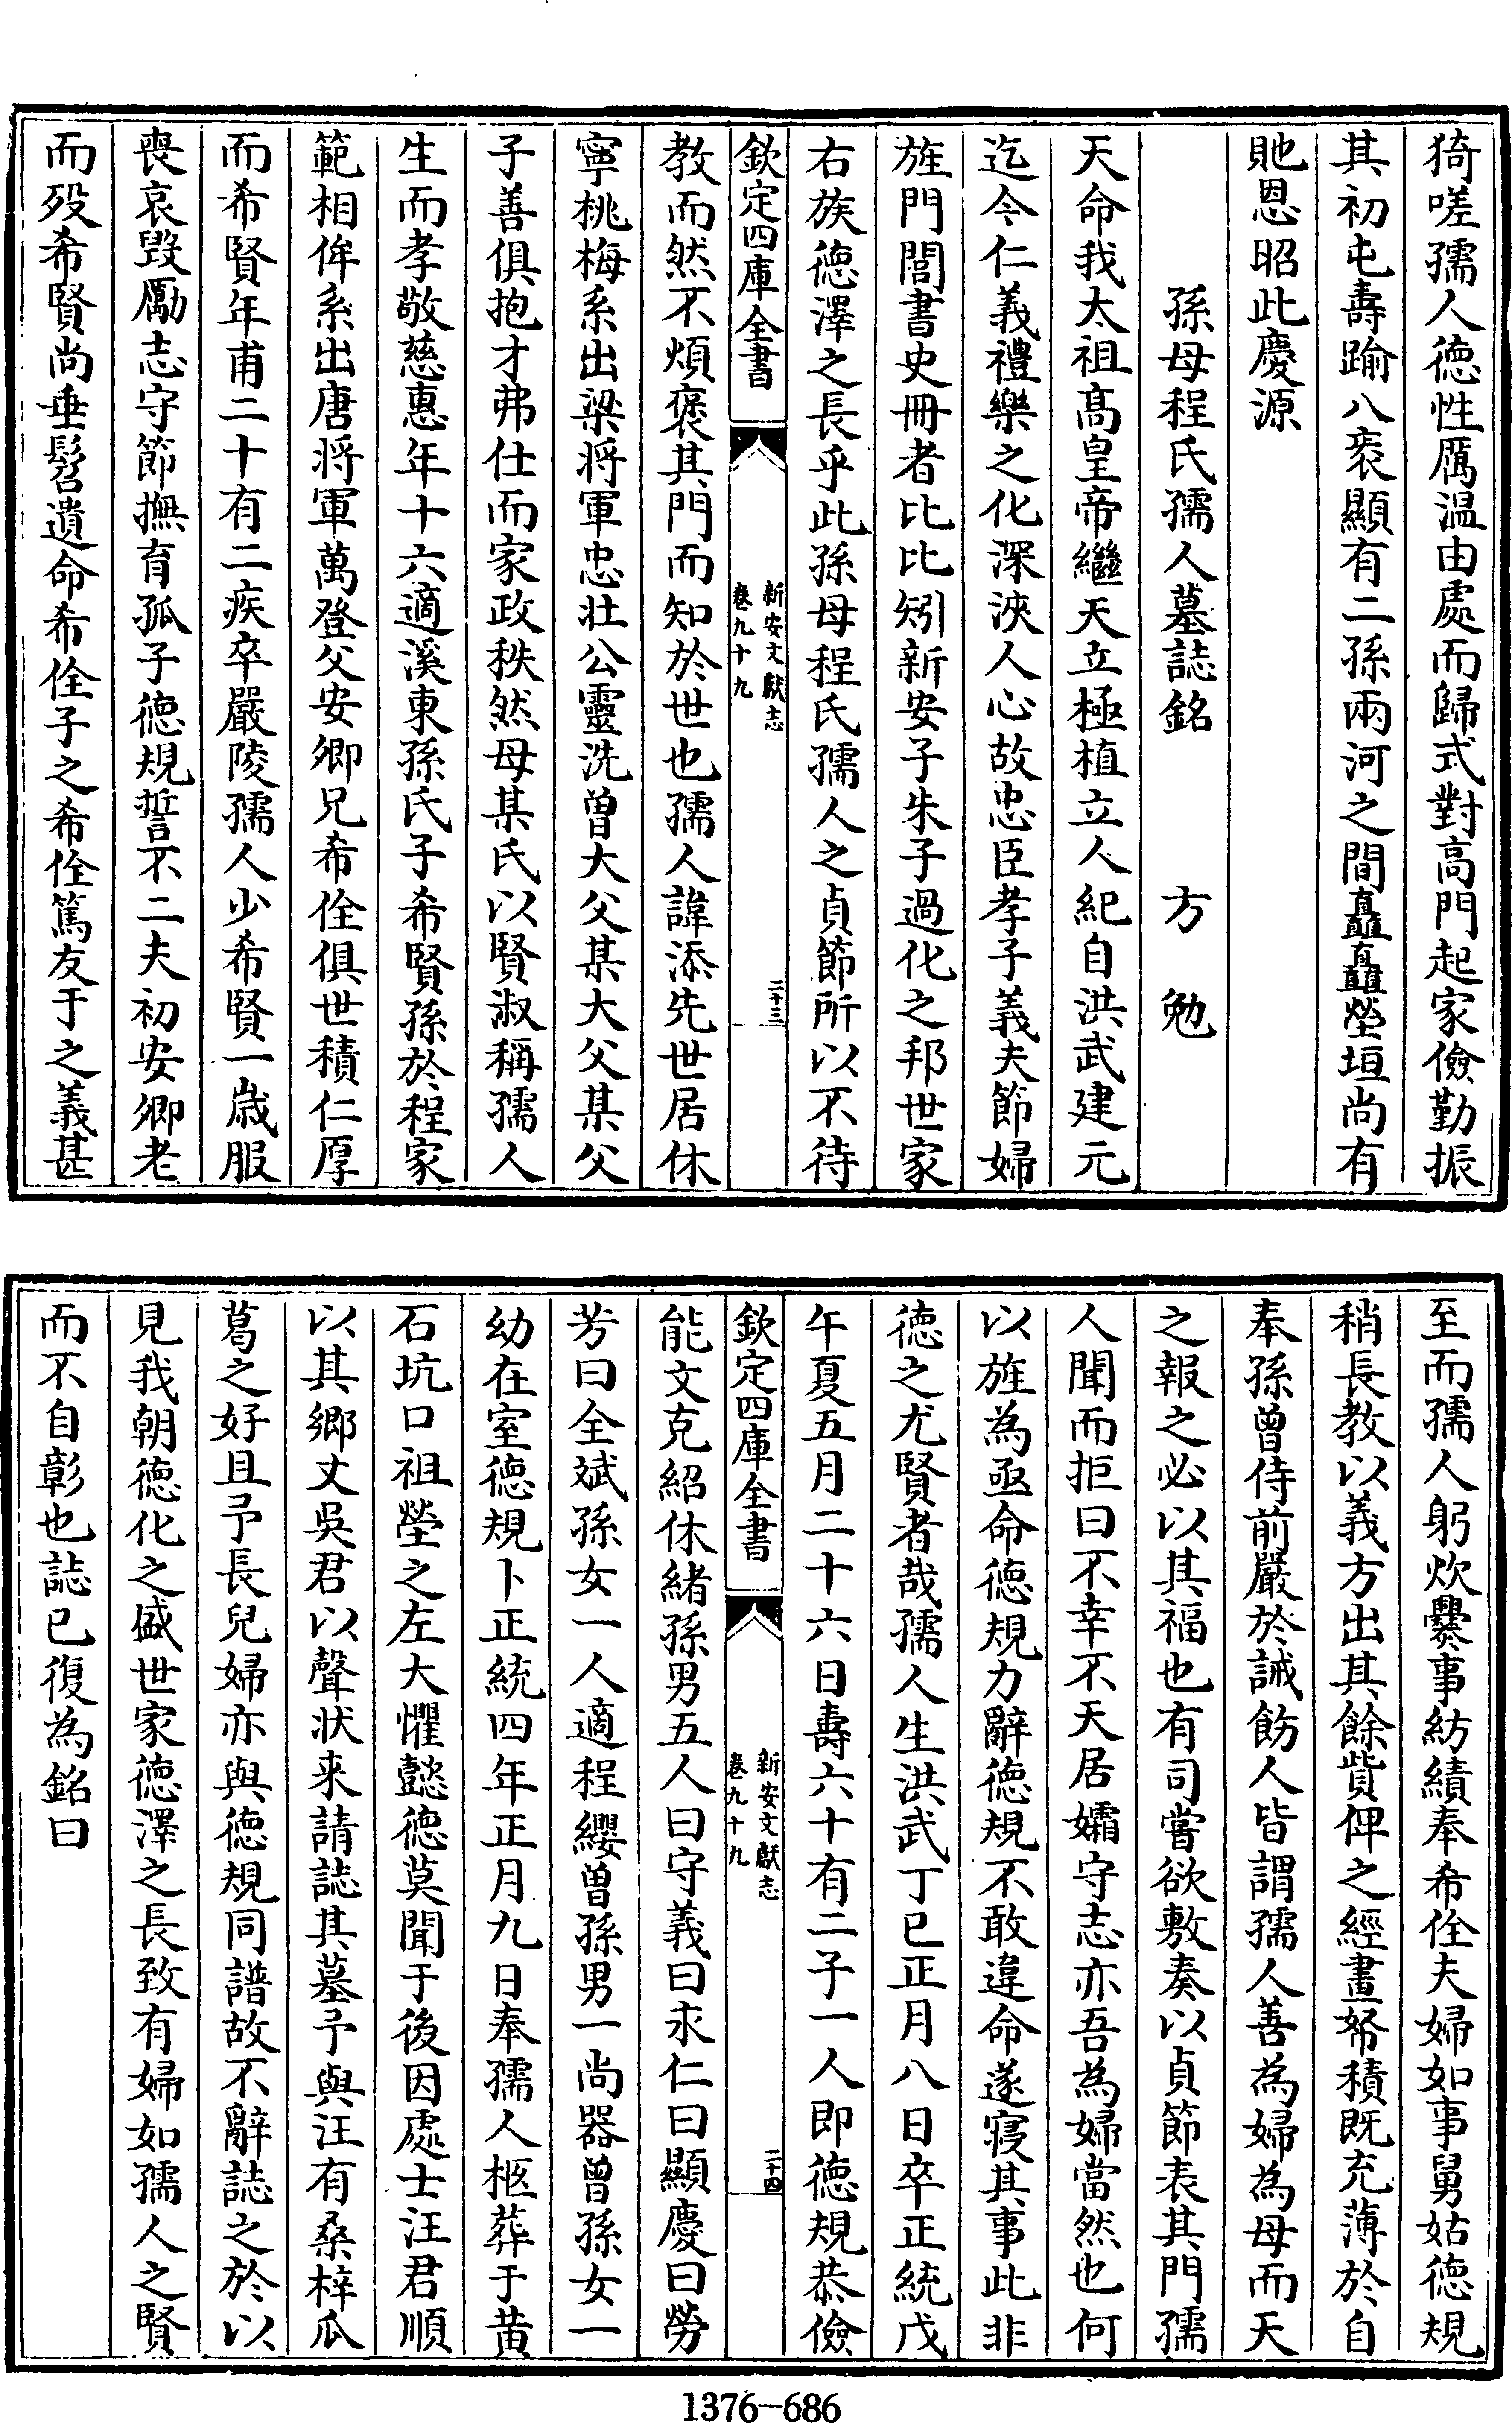 猗嗟孺人德性厲溫由處而歸式對高門起家儉勤振
其初屯壽踰八袠顯有二孫兩河之間矗矗塋垣尚有
貤恩昭此慶源
孫母程氏孺人墓誌銘 方勉
天命我太祖髙皇帝繼天立極植立人紀自洪武建元
迄今仁義禮樂之化深浹人心故忠臣孝子義夫節婦
旌門閭書史冊者比比矧新安子朱子過化之邦世家
右族德澤之長乎此孫母程氏孺人之貞節所以不待
欽定四庫全書 新安文獻志 卷九十九 二十三
教而然不煩褒其門而知於世也孺人諱添先世居休
寧桃梅系出梁將軍忠壯公靈洗曾大父某大父某父
子善俱抱才弗仕而家政秩然母某氏以賢淑稱孺人
生而孝敬慈惠年十六適溪東孫氏子希賢孫於程家
範相侔系出唐將軍萬登父安卿兄希佺俱世積仁厚
而希賢年甫二十有二疾卒嚴陵孺人少希賢一歲服
喪哀毀勵志守節撫育孤子德規誓不二夫初安卿老
而歿希賢尚垂髫遺命希佺子之希佺篤友于之義甚
至而孺人躬炊爨事紡績奉希佺夫婦如事舅姑德規
稍長教以義方出其餘貲俾之經畫帑積既充薄於自
奉孫曾侍前嚴於誡飭人皆謂孺人善為婦為母而天
之報之必以其福也有司嘗欲敷奏以貞節表其門孺
人聞而拒曰不幸不天居孀守志亦吾為婦當然也何
以旌為亟命德規力辭德規不敢違命遂寢其事此非
德之尤賢者哉孺人生洪武丁巳正月八日卒正統戊
午夏五月二十六日壽六十有二子一人即德規恭儉
欽定四庫全書 新安文獻志 卷九十九 二十四
能文克紹休緒孫男五人曰守義曰永仁曰顯慶曰勞
芳曰全斌孫女一人適程纓曾孫男一尚器曾孫女一
幼在室德規卜正統四年正月九日奉孺人柩葬于黄
石坑口祖塋之左大懼懿德莫聞于後因處士汪君順
以其鄉丈吳君以聲狀来請誌其墓予與汪有桑梓瓜
葛之好且予長兒婦亦與德規同譜故不辭誌之於以
見我朝德化之盛世家德澤之長致有婦如孺人之賢
而不自彰也誌已復為銘曰
1376-686